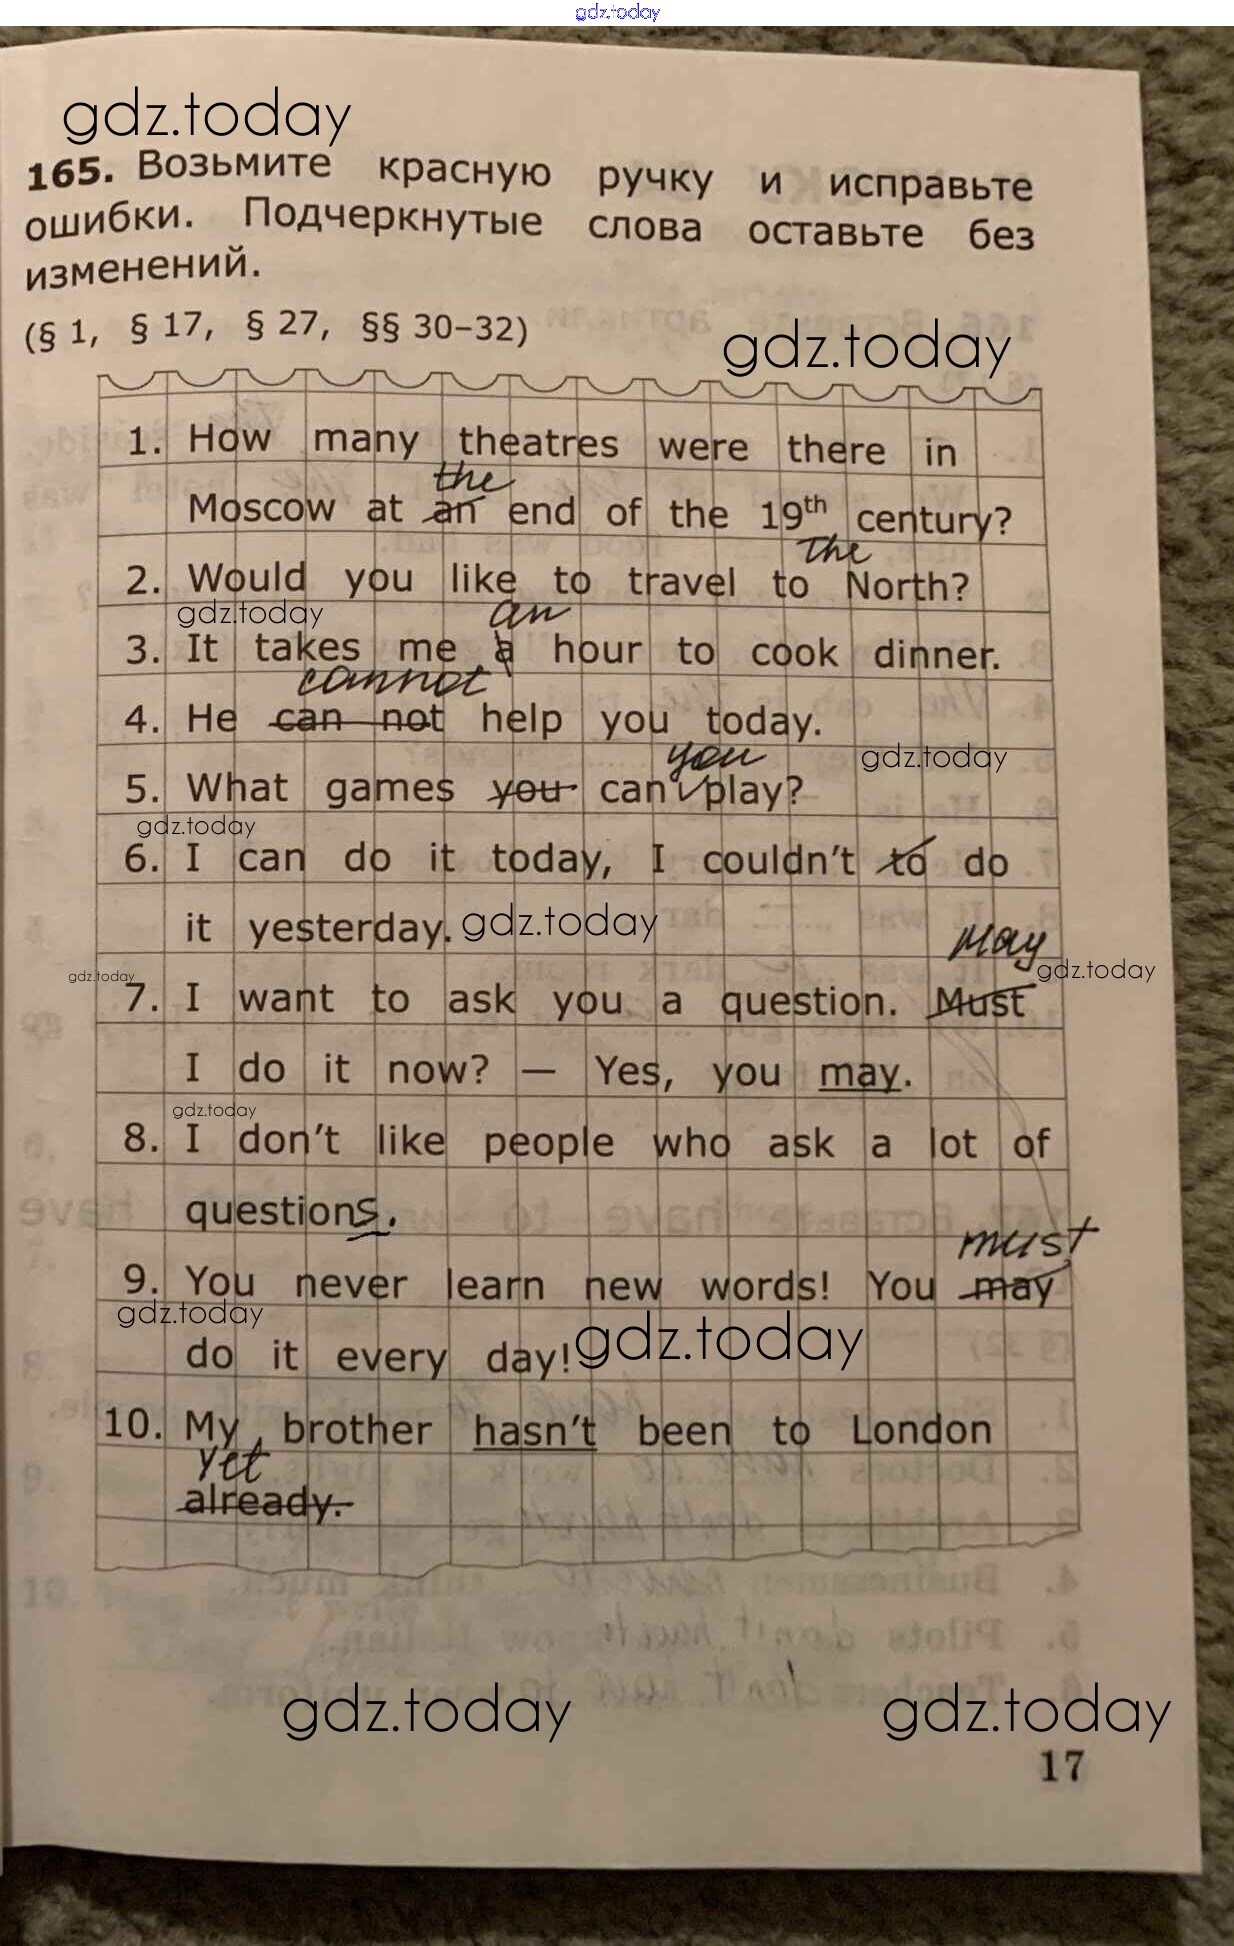 gdz.today
gdz.today
165. Возьмите красную ручку и исправьте
ошибки. Подчеркнутые слова оставьте без
изменений.
(§ 1, § 17, § 27, §§ 30–32)
gdz.today
1. How many theatres were there in
the
Moscow at an end of the 19th century?
The
2. Would you like to travel to North?
gdz.today
an
3. It takes me a hour to cook dinner.
cannot
4. He can not help you today.
you
gdz.today
5. What games you can play?
gdz.today
6. I can do it today, I couldn't to do
it yesterday.
gdz.today
May
gdz.today
gdz.today
7. I want to ask you a question. Must
I do it now? — Yes, you may.
gdz.today
8. I don't like people who ask a lot of
questions.
must
9. You never learn new words! You may
gdz.today
do it every day!
gdz.today
10. My brother hasn't been to London
yet
already.
gdz.today
gdz.today
17